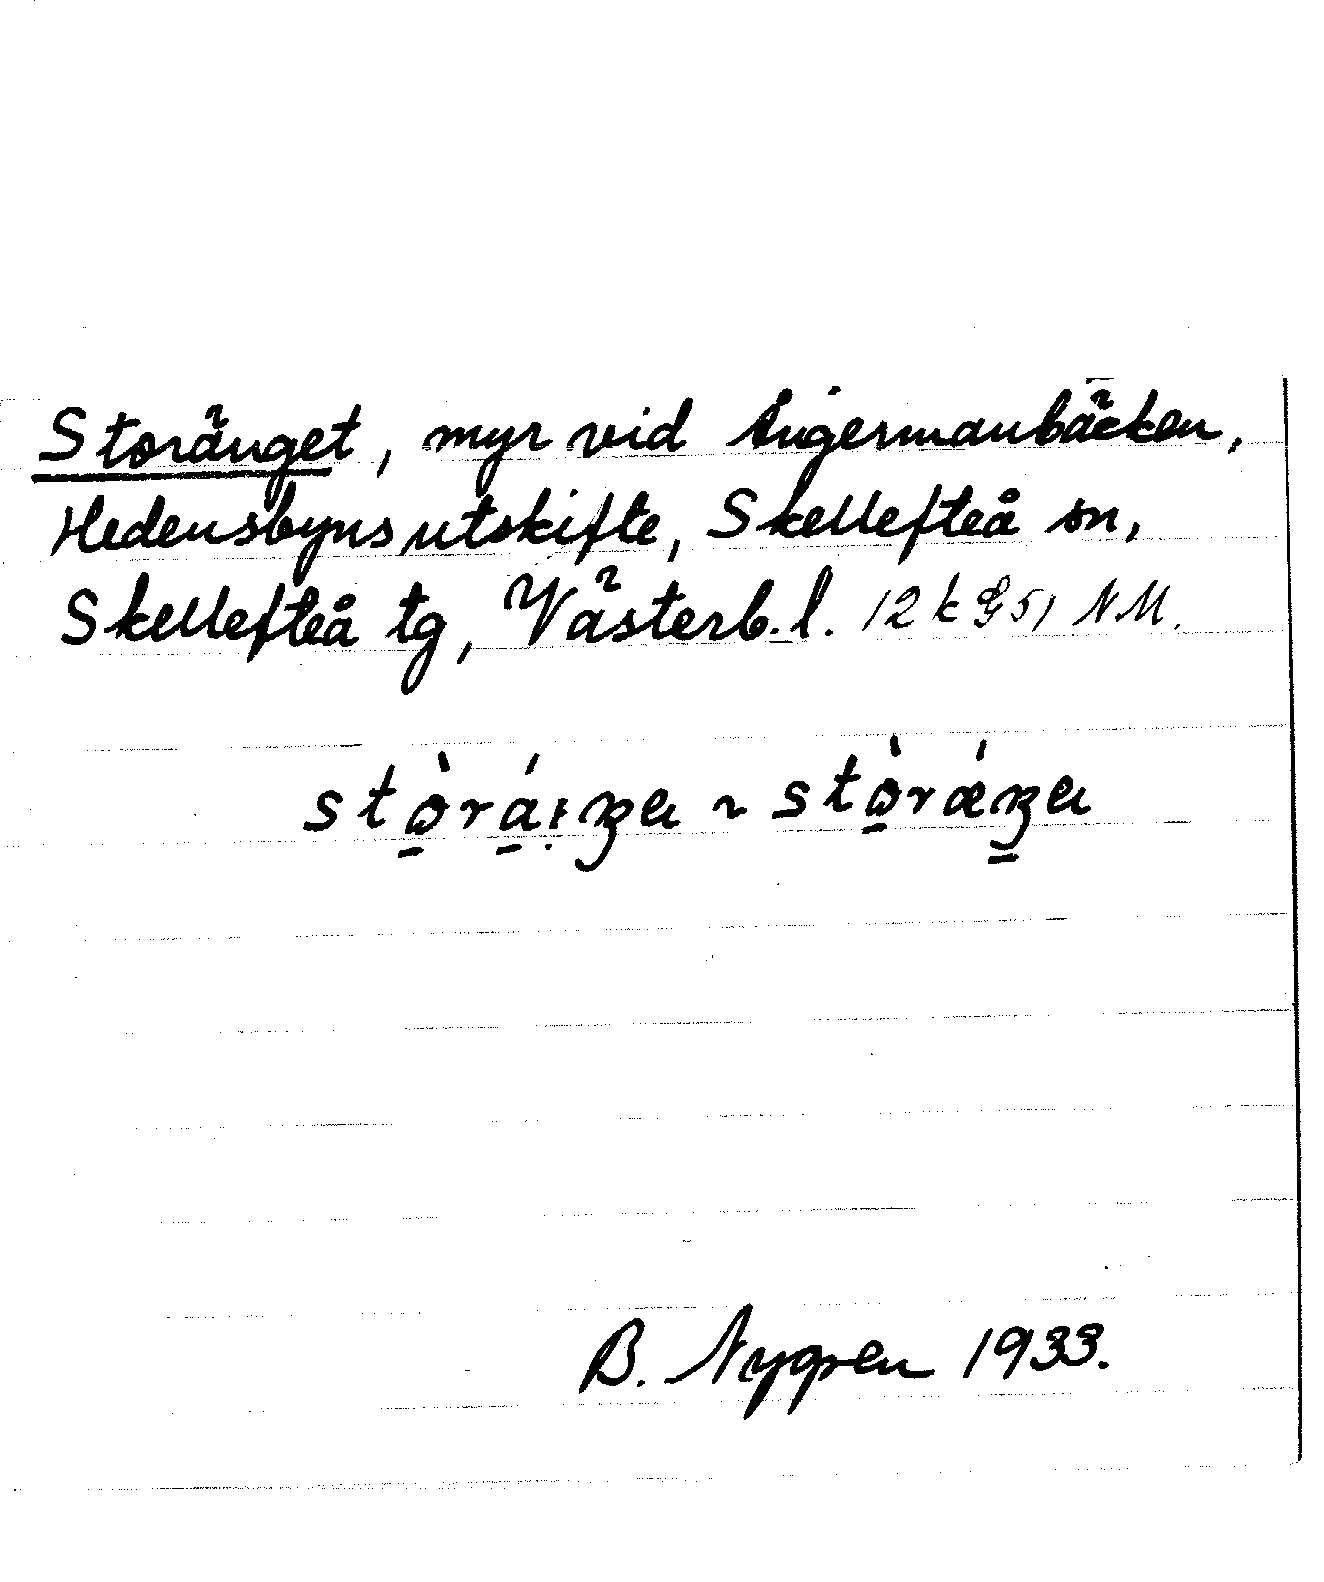 Storänget, myr vid Ångermanbäcken,
Hedensbyns utskifte, Skellefteå sn,
Skellefteå tg, Västerb. l. 12 k G 51 N.M.
B. Nygren 1933.